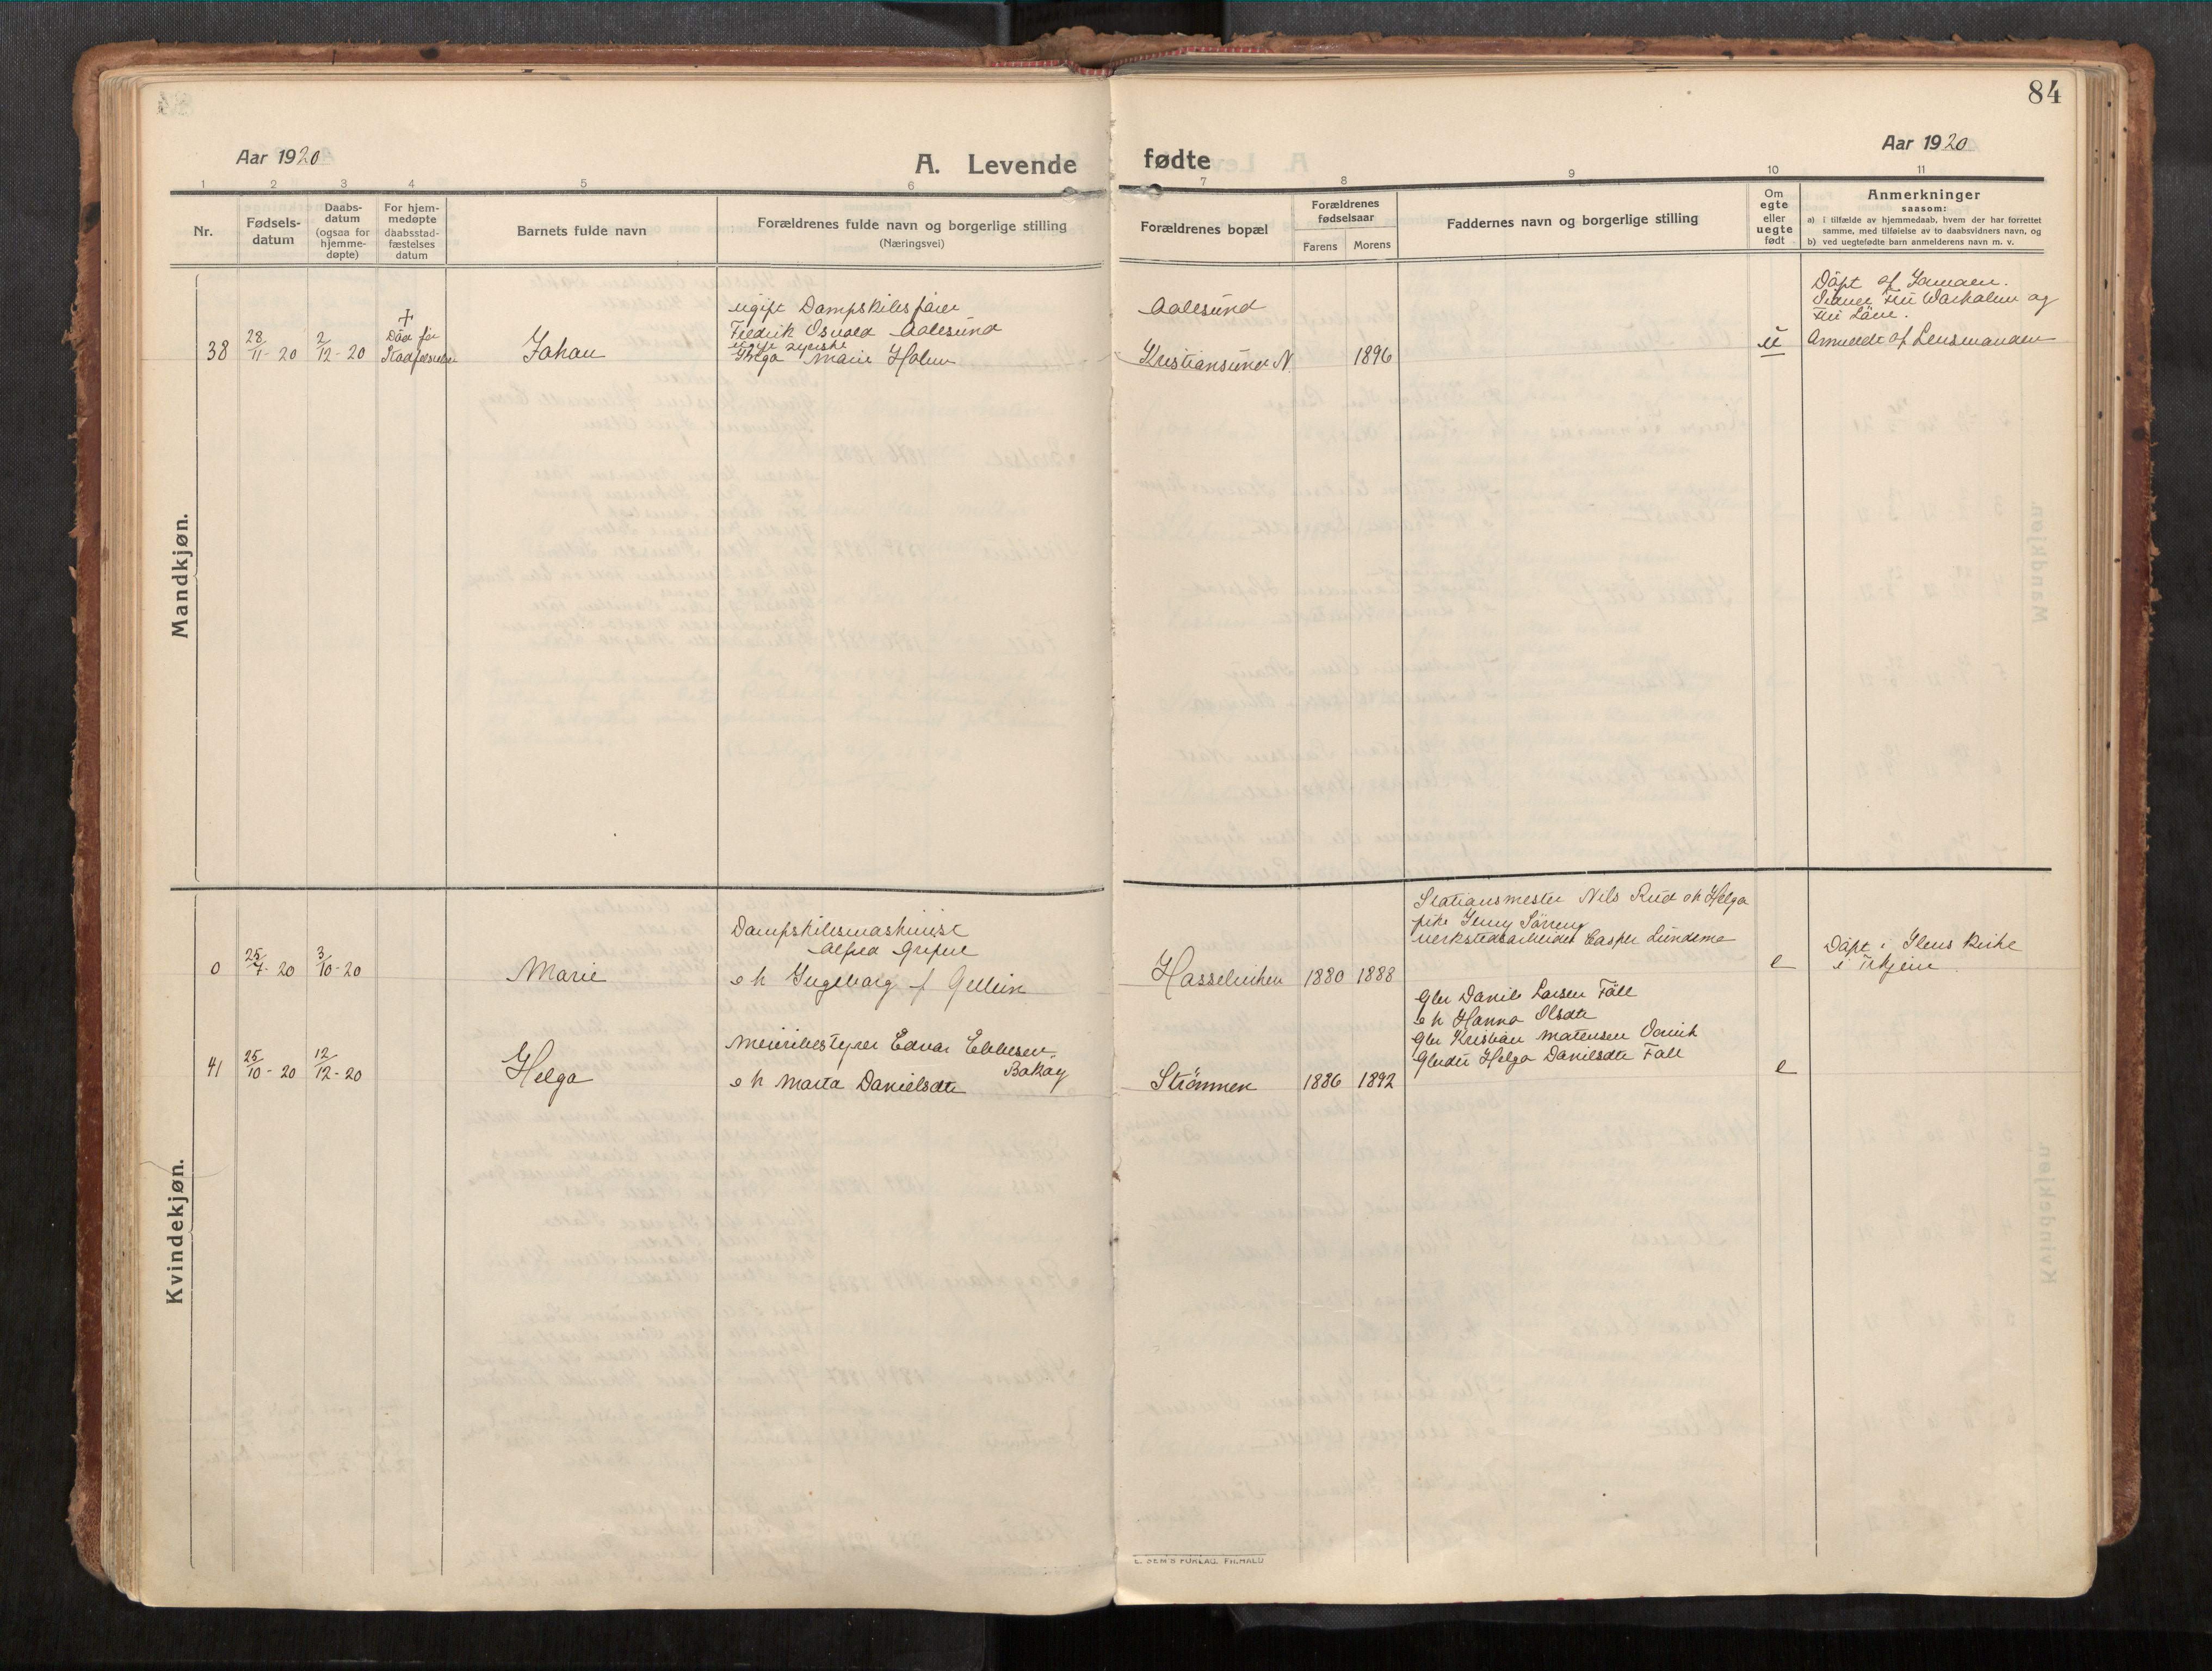 84
Aar 1920
A. Levende fødte
Aar 1920
1 2 3 4 5 6 7 8 9 10 11
Nr.
Fødsels-
datum
Daabs-
datum
(ogsaa for
hjemme-
døpte)
For hjem-
medøpte
daabsstad-
fæstelses
datum
Barnets fulde navn
Forældrenes fulde navn og borgerlige stilling
(Næringsvei)
Forældrenes bopæl
Forældrenes
fødselsaar
Farens
Morens
Faddernes navn og borgerlige stilling
Om
egte
eller
uegte
født
Anmerkninger
saasom:
a) i tilfælde av hjemmedaab, hvem der har forrettet
samme, med tilføielse av to daabsvidners navn, og
b) ved uegtefødte barn anmelderens navn m. v.
Mandkjøn.
38
28/11 - 20
2/12 - 20
†
Död før
Johan
ugift Dampskibsfører
Fredrik Osvald Aalesund
ugift syerske
Helga Marie Holm
Aalesund
Kristiansund N.
1896
u
Döpt af Jormoren.
og
Fru Löve.
Anmeldt af Lensmanden
Kvindekjøn.
0
25/7 - 20
3/10 - 20
Marie
Dampskibsmaskinist
Alfred Gripne
o h Ingeborg f Gellein
Hasselviken
1880
1888
Stationsmester Nils Rud o h Helga
pike Jenny Sörreng
verkstedsarbeider Casper Lundemo
e
Döpt i Ilens kirke
i Trhjem
41
25/10 - 20
12/12 - 20
Helga
Meieribestyrer Edvar Ebbesen
Bakøy
o h Marta Danielsdtr
Strömmen
1886
1892
Gbr Daniel Larsen Fäll
o h Hanna Olsdtr
Gbr Kristian Matensen Darvik
Gbrdtr Helga Danielsdtr Fäll
e
E. SEM'S FORLAG, FR.HALD